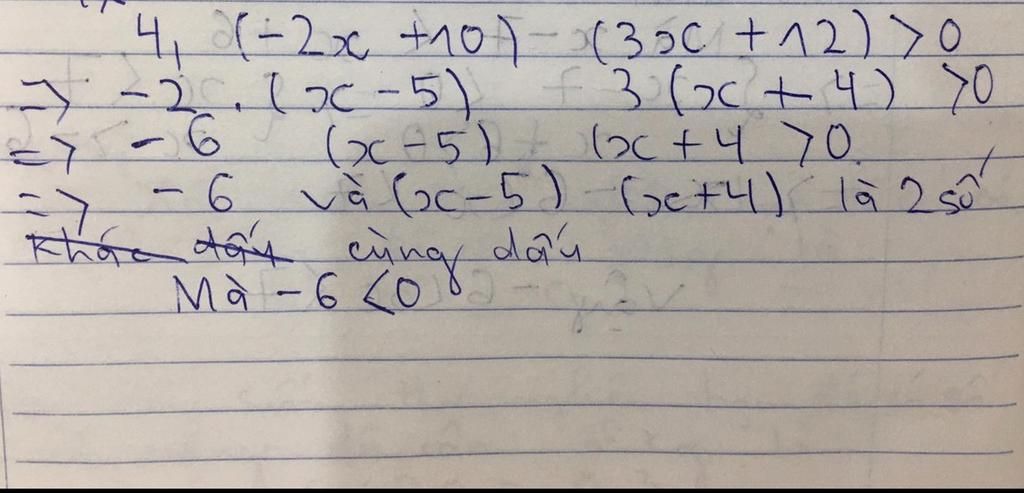 4, (-2x + 10) - (3x + 12) > 0
=> -2 . (x - 5) 3 (x + 4) > 0
=> -6 (x - 5) (x + 4 > 0
=> -6 và (x - 5) (x + 4) là 2 số
khác dấu cùng dấu
Mà -6 < 0